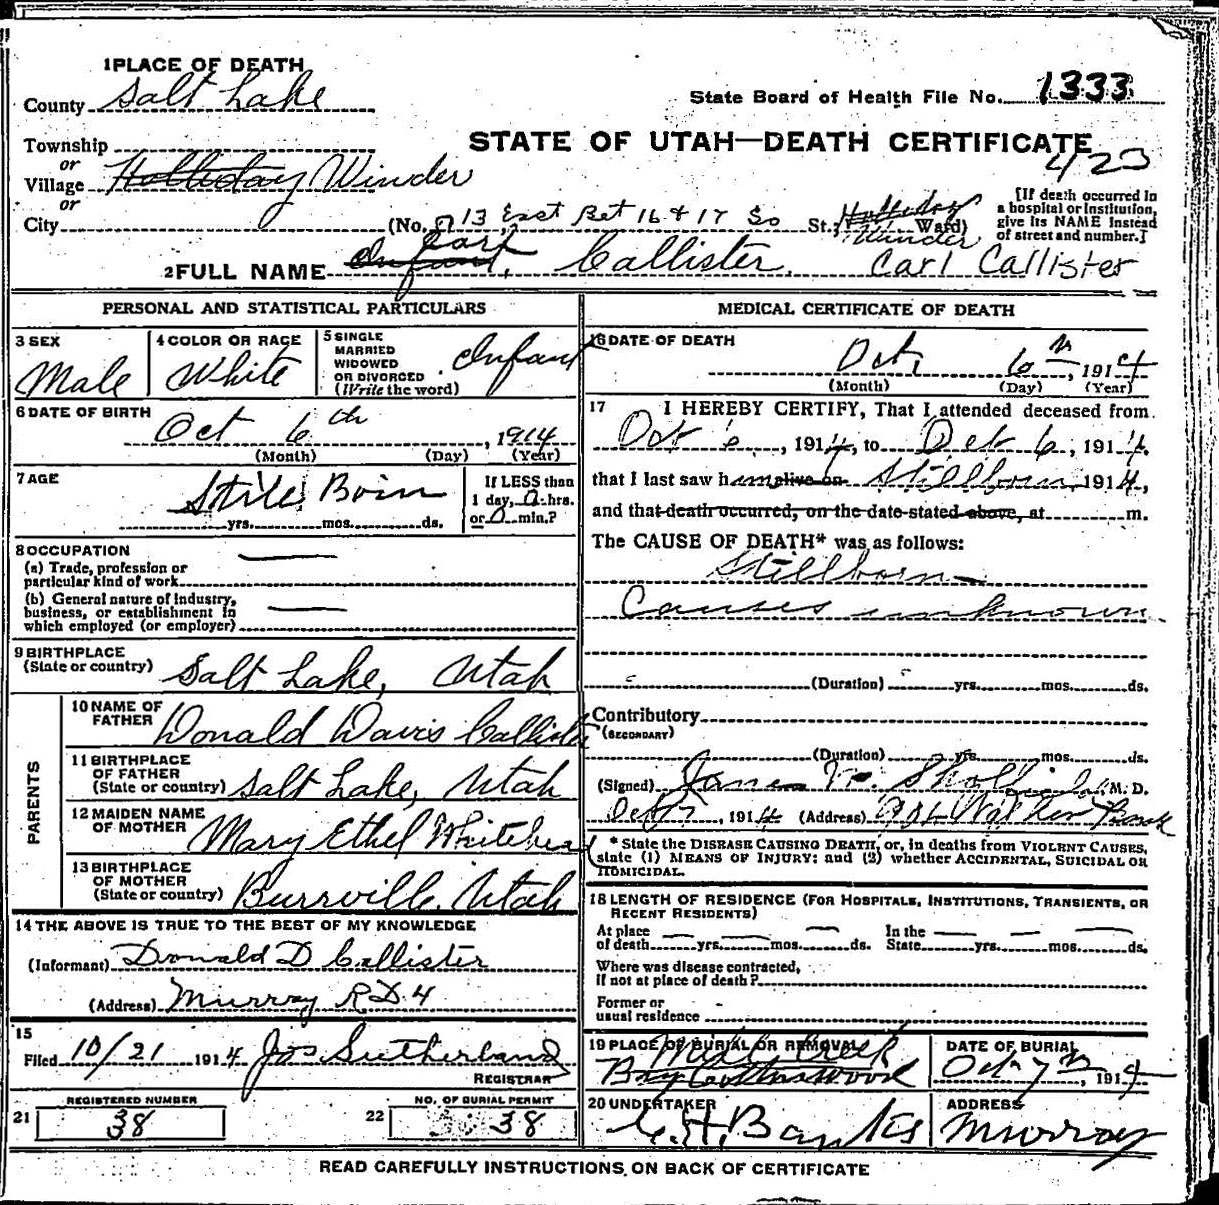 1 PLACE OF DEATH
County Salt Lake
State Board of Health File No. 1333
STATE OF UTAH—DEATH CERTIFICATE
423
Township
or
Village Holliday Winder
or
City (No. 713 East Bet 16 & 17 So St.; Holliday Winder Ward)
[If death occurred in
a hospital or institution,
give its NAME instead
of street and number.]
2 FULL NAME Infant, Carl Callister. Carl Callister
PERSONAL AND STATISTICAL PARTICULARS
3 SEX
Male
4 COLOR OR RACE
White
5 SINGLE
MARRIED
WIDOWED
OR DIVORCED
(Write the word)
Infant
6 DATE OF BIRTH
Oct 6th, 1914
(Month) (Day) (Year)
7 AGE
Stile Born
yrs. mos. ds.
If LESS than
1 day, 0 hrs.
or 0 min.?
8 OCCUPATION
(a) Trade, profession or
particular kind of work
(b) General nature of industry,
business, or establishment in
which employed (or employer)
9 BIRTHPLACE
(State or country) Salt Lake, Utah
PARENTS
10 NAME OF
FATHER Donald Davis Callister
11 BIRTHPLACE
OF FATHER
(State or country) Salt Lake, Utah
12 MAIDEN NAME
OF MOTHER Mary Ethel Whitehead
13 BIRTHPLACE
OF MOTHER
(State or country) Burrville, Utah
14 THE ABOVE IS TRUE TO THE BEST OF MY KNOWLEDGE
(Informant) Donald D Callister
(Address) Murray R D 4
15
Filed 10/21 1914 Jos Sutherland
REGISTRAR
21 REGISTERED NUMBER
38
22 NO. OF BURIAL PERMIT
38
MEDICAL CERTIFICATE OF DEATH
16 DATE OF DEATH
Oct, 6th, 1914
(Month) (Day) (Year)
17 I HEREBY CERTIFY, That I attended deceased from
Oct 6, 1914, to Oct 6, 1914.
that I last saw him alive on Stillborn, 1914,
and that death occurred, on the date stated above, at m.
The CAUSE OF DEATH* was as follows:
Stillborn—
Causes unknown
(Duration) yrs. mos. ds.
Contributory
(SECONDARY)
(Duration) yrs. mos. ds.
(Signed) James M. M. D.
Oct 7, 1914 (Address) Walker
* State the DISEASE CAUSING DEATH, or, in deaths from VIOLENT CAUSES,
state (1) MEANS OF INJURY; and (2) whether ACCIDENTAL, SUICIDAL OR
HOMICIDAL.
18 LENGTH OF RESIDENCE (FOR HOSPITALS, INSTITUTIONS, TRANSIENTS, OR
RECENT RESIDENTS)
At place
of death yrs. mos. ds.
In the
State yrs. mos. ds.
Where was disease contracted,
if not at place of death?
Former or
usual residence
19 PLACE OF BURIAL OR REMOVAL
Mill Creek
Big Cottonwood
DATE OF BURIAL
Oct 7th, 1914
20 UNDERTAKER
C. H. Banks
ADDRESS
Murray
READ CAREFULLY INSTRUCTIONS ON BACK OF CERTIFICATE